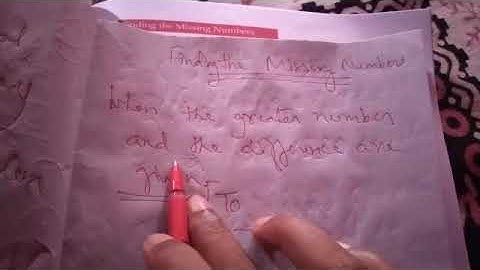 Finding the Missing Numbers
Finding the Missing Numbers
When the greater number
and the difference are
given
T To